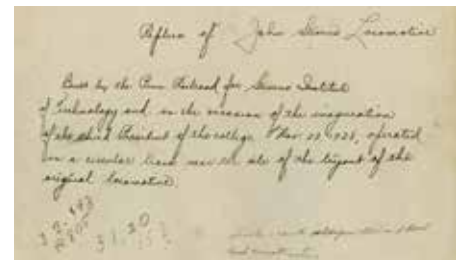 Replica of John Stevens Locomotive
Built by the Penn Railroad for Stevens Institute
of Technology and on the occasion of the inauguration
of the third President of the college Nov. 23 1928, operated
on a circular track near the site of the layout of the
original locomotive.